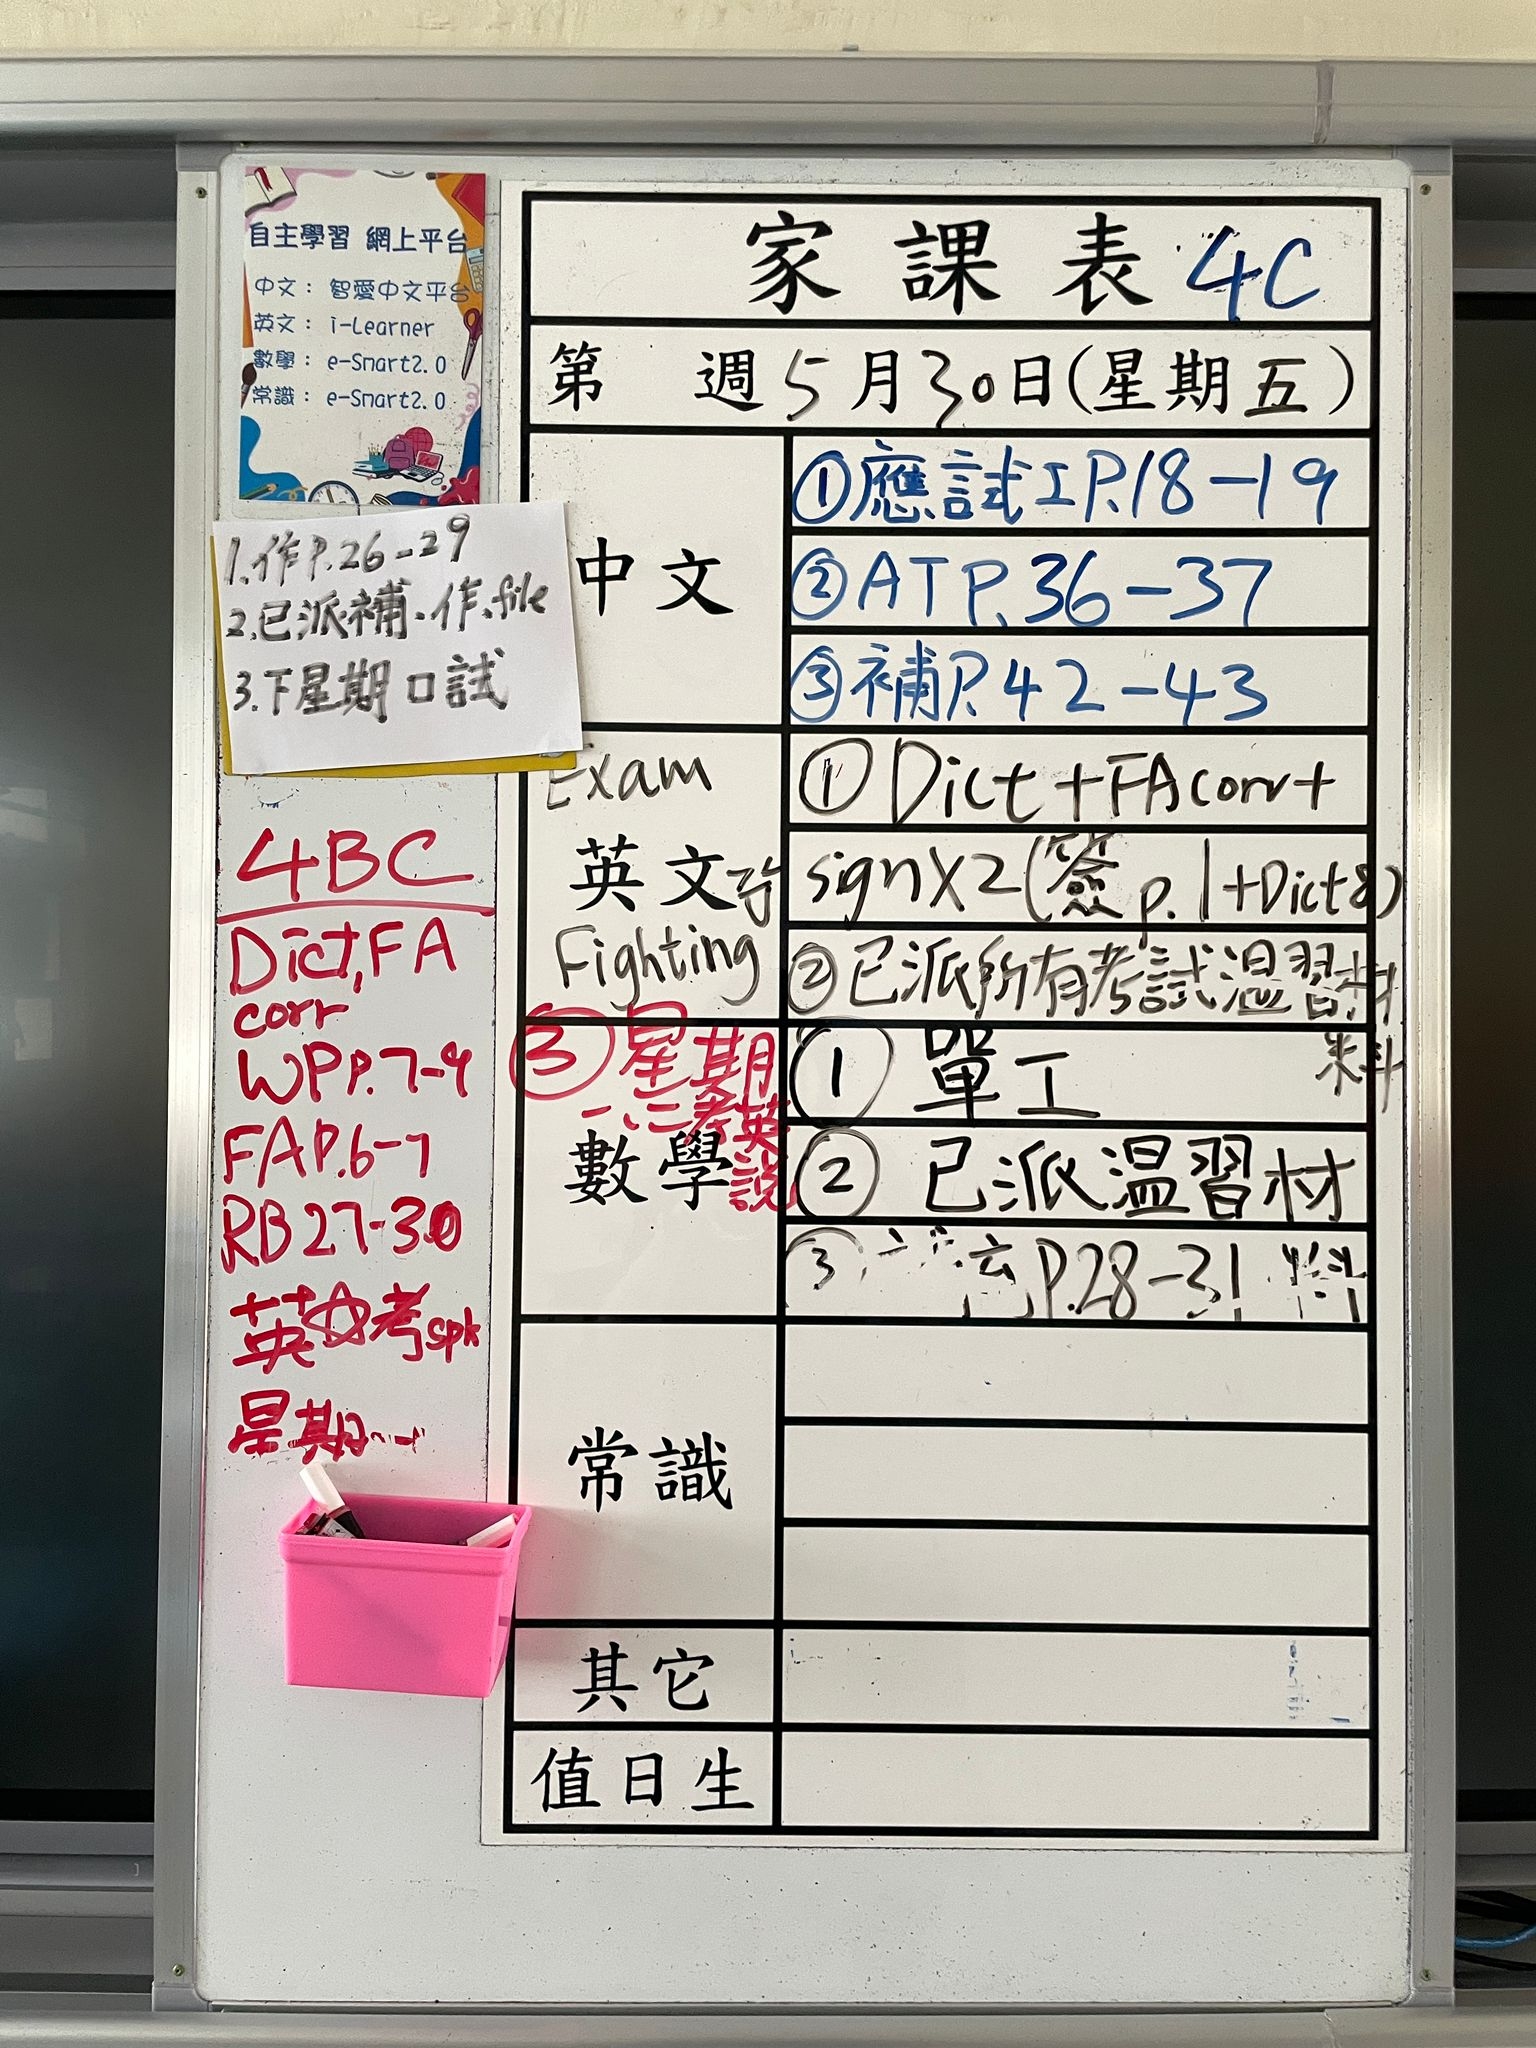 自主學習 網上平台
中文： 智愛中文平台
英文： i-Learner
數學： e-Smart2.0
常識： e-Smart2.0
1.作P.26-29
2.已派補、作、file
3.下星期口試
4BC
Dict, FA
corr
WP P.7-9
FA P.6-7
RB 27-30
英 考 spk
星期一
家課表 4C
第 週 5月30日(星期五)
中文
①應試工P.18-19
②AT P.36-37
③補P.42-43
Exam
英文
Fighting
①Dict+FA corr+
sign X2(簽p.1+Dict8)
②已派所有考試溫習材
料
③星期
一、二考英
説
數學
①單工
②已派溫習材
料
③ P.28-31
常識
其它
值日生